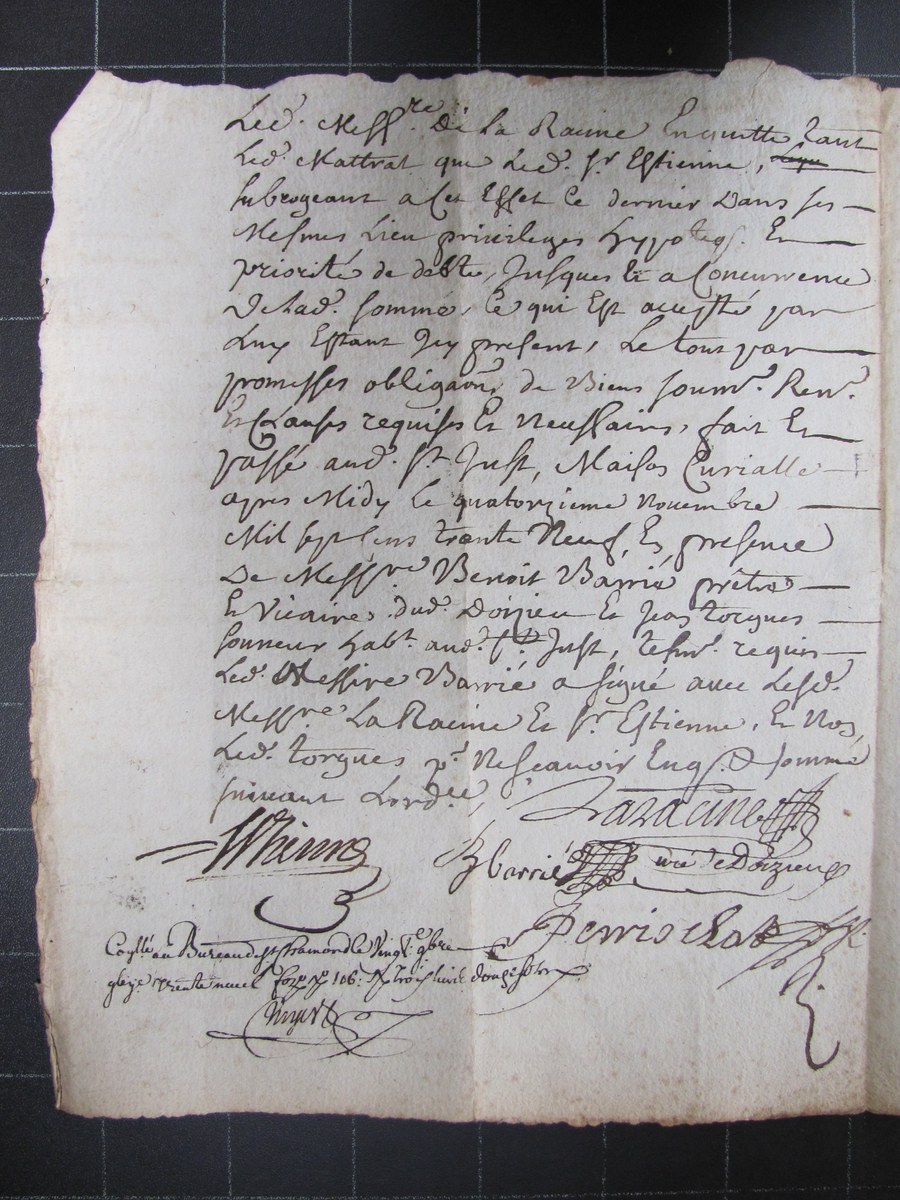 Led. Messre. De La Racine En quitte tant
Led. Mattrat que Led. Sr. Estienne,
subrogeant a Cet Effet Ce dernier Dans ses
Mesmes Lieu privileges hypoteqs. Et
priorité de debte, Jusques a Concurrence
De Lad. somme, Ce qui Est accepté par
Luy Estant Icy present, Le tout par
promesses obligaôns de Biens soum. Ren.
Et Clauses requises Et Necessaires, fait Et
passé aud. St. Just, Maison Curialle
apres Midy Le quatorzieme novembre
Mil sept Cens trente Neuf, En presence
De Messre Benoit Barrié prêtre
Et Vicaire dud. Doizieu Et Jean torgues
sonneur habt. aud. St. Just, tesm. requis
Led. Messire Barrié a signé avec Lesd.
Messre La Racine Et Sr. Estienne, Et Non
Led. torgues pr. Ne sçavoir Enqs. & sommé
suivant Lordce.
Laracine
Barrié vic. de Doizieu
Perrischat
Conllé au Bureau de St Chamond le Vingt 9bre
trente neuf fo 106 R trois livres douze sols